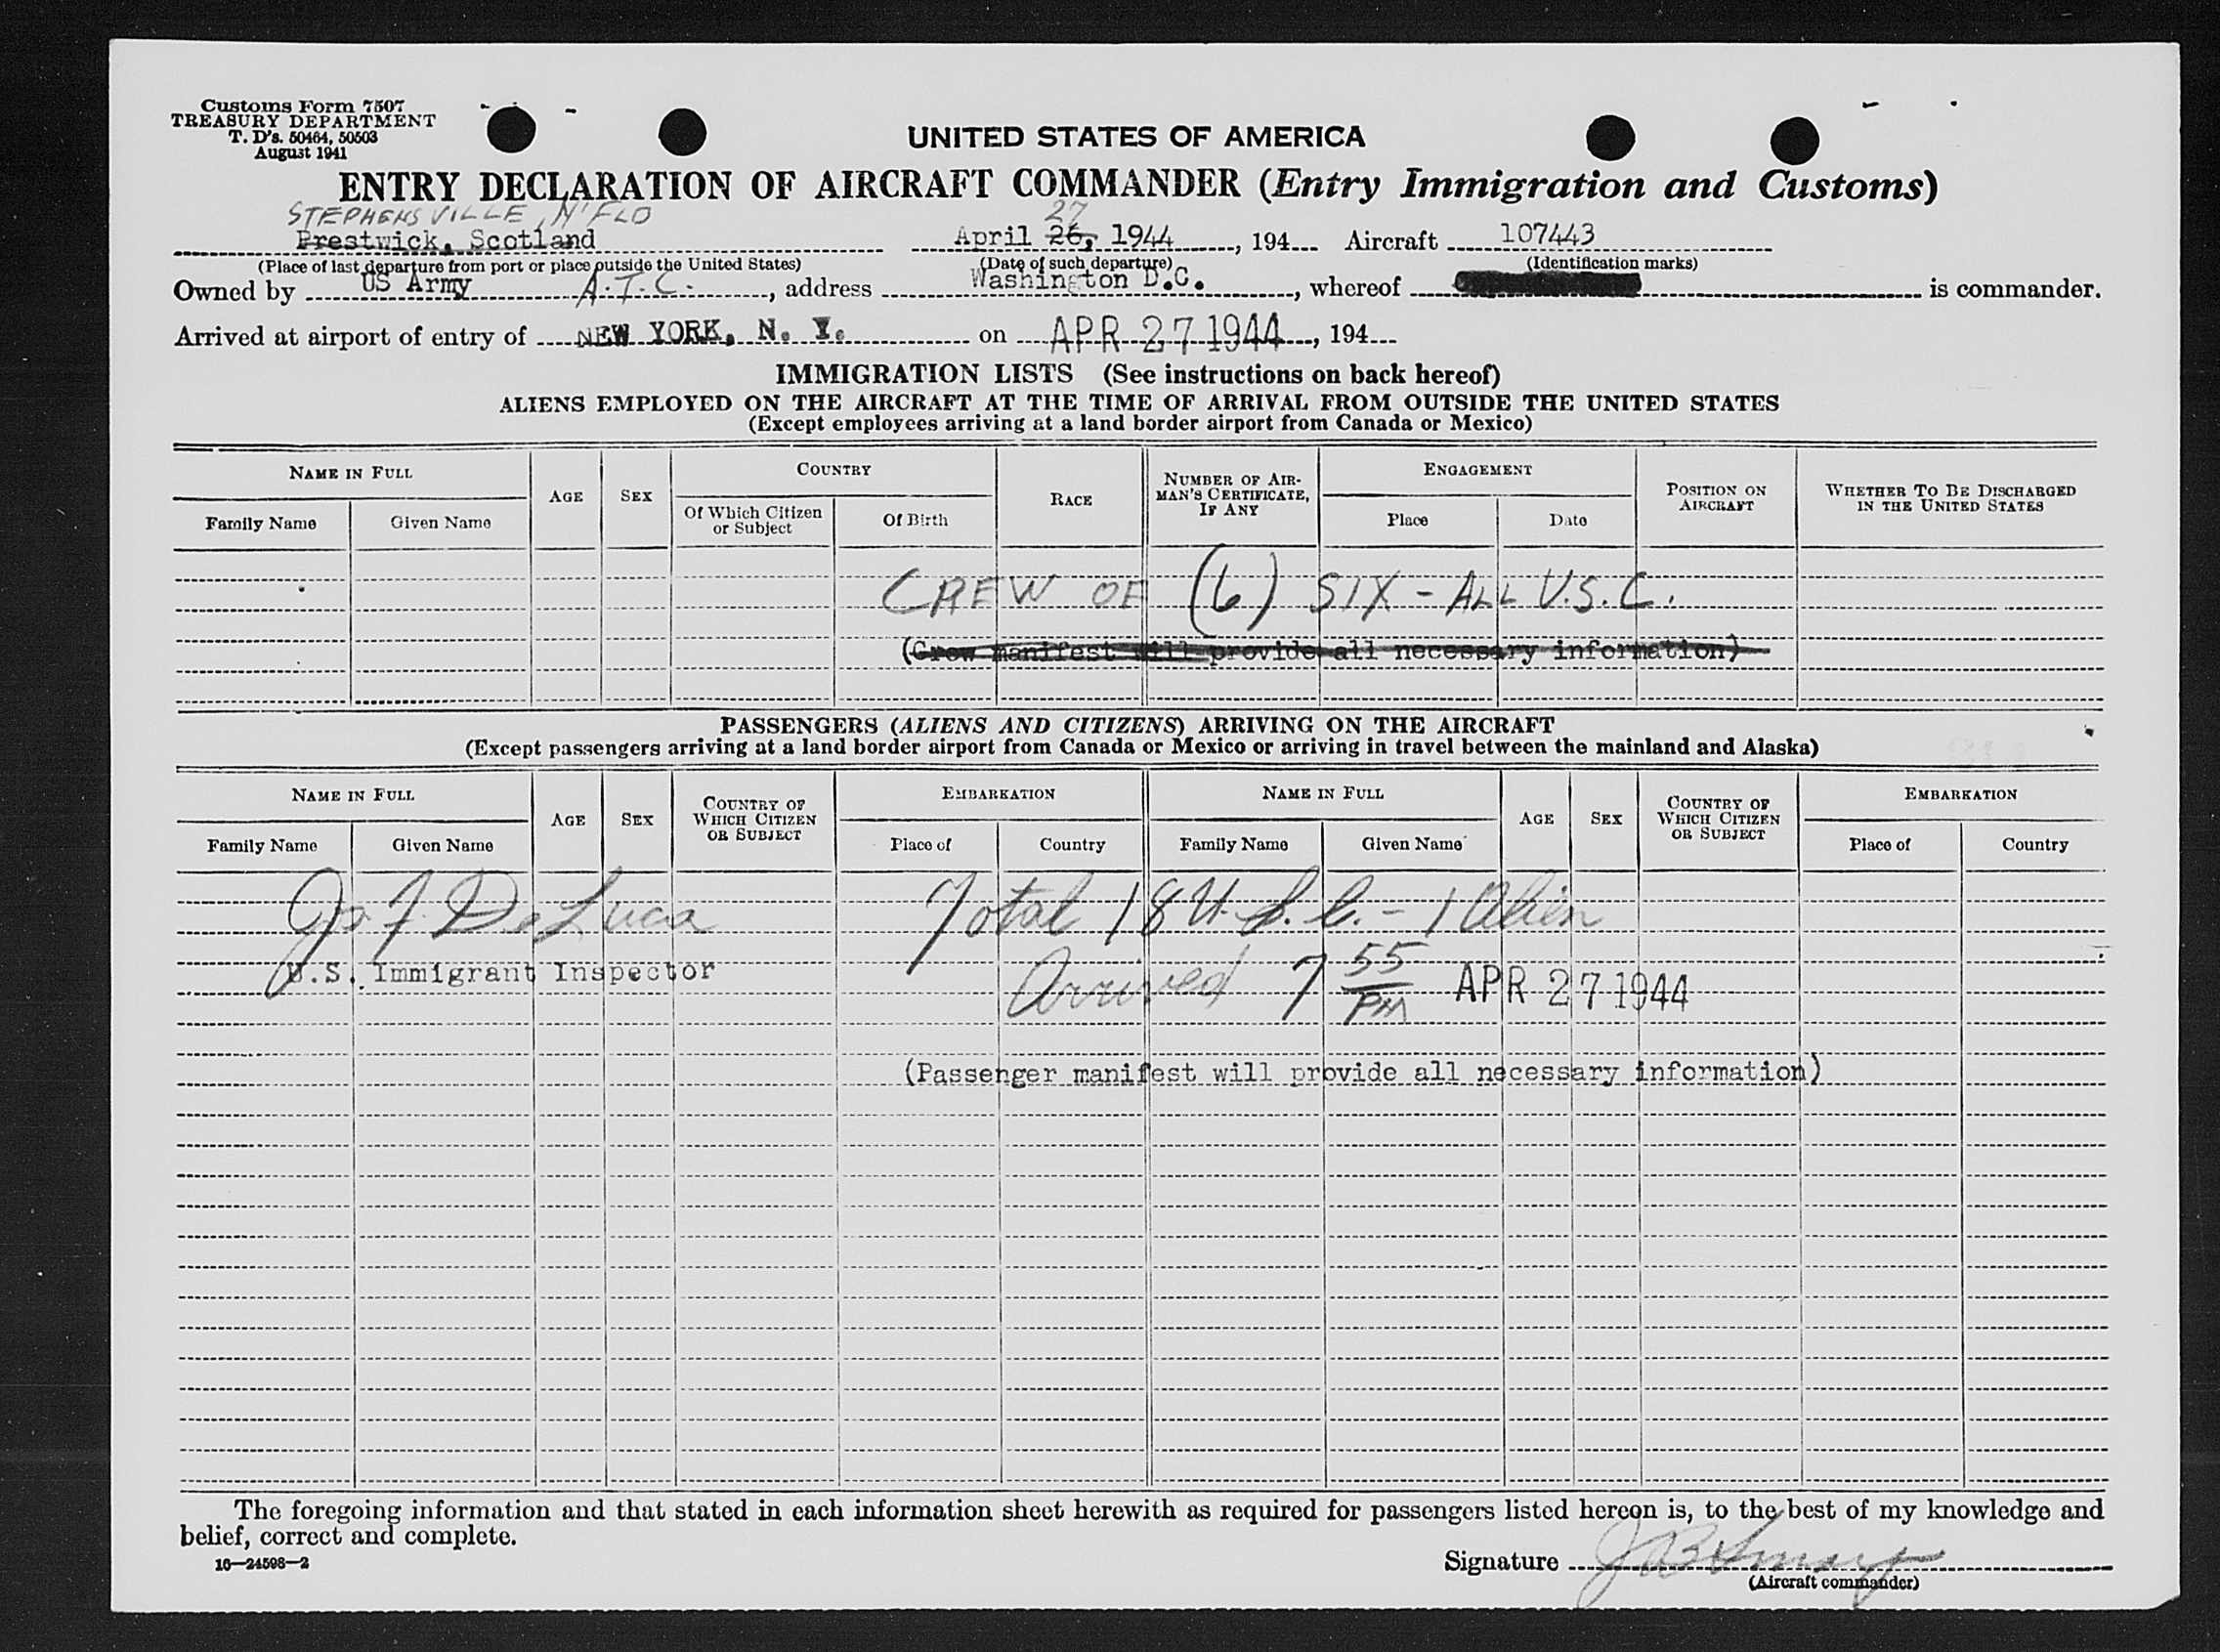 Customs Form 7507
TREASURY DEPARTMENT
T. D's. 50464, 50503
August 1941
UNITED STATES OF AMERICA
ENTRY DECLARATION OF AIRCRAFT COMMANDER (Entry Immigration and Customs)
STEPHENSVILLE, N'FLD 27
Prestwick, Scotland April 26, 1944, 194 Aircraft 107443
(Place of last departure from port or place outside the United States) (Date of such departure) (Identification marks)
Owned by US Army A.T.C., address Washington D.C., whereof is commander.
Arrived at airport of entry of NEW YORK, N. Y. on APR 27 1944, 194
IMMIGRATION LISTS (See instructions on back hereof)
ALIENS EMPLOYED ON THE AIRCRAFT AT THE TIME OF ARRIVAL FROM OUTSIDE THE UNITED STATES
(Except employees arriving at a land border airport from Canada or Mexico)
NAME IN FULL AGE SEX COUNTRY RACE NUMBER OF AIRMAN'S CERTIFICATE, IF ANY ENGAGEMENT POSITION ON AIRCRAFT WHETHER TO BE DISCHARGED IN THE UNITED STATES
Family Name Given Name Of Which Citizen or Subject Of Birth Place Date
CREW OF (6) SIX - ALL U.S.C.
(Crew manifest will provide all necessary information)
PASSENGERS (ALIENS AND CITIZENS) ARRIVING ON THE AIRCRAFT
(Except passengers arriving at a land border airport from Canada or Mexico or arriving in travel between the mainland and Alaska)
NAME IN FULL AGE SEX COUNTRY OF WHICH CITIZEN OR SUBJECT EMBARKATION NAME IN FULL AGE SEX COUNTRY OF WHICH CITIZEN OR SUBJECT EMBARKATION
Family Name Given Name Place of Country Family Name Given Name Place of Country
Jos F. DeLuca Total 18 U.S.C. - 1 Alien
U.S. Immigrant Inspector Arrived 7 55 PM APR 27 1944
(Passenger manifest will provide all necessary information)
The foregoing information and that stated in each information sheet herewith as required for passengers listed hereon is, to the best of my knowledge and
belief, correct and complete.
16—24598—2
Signature
(Aircraft commander)